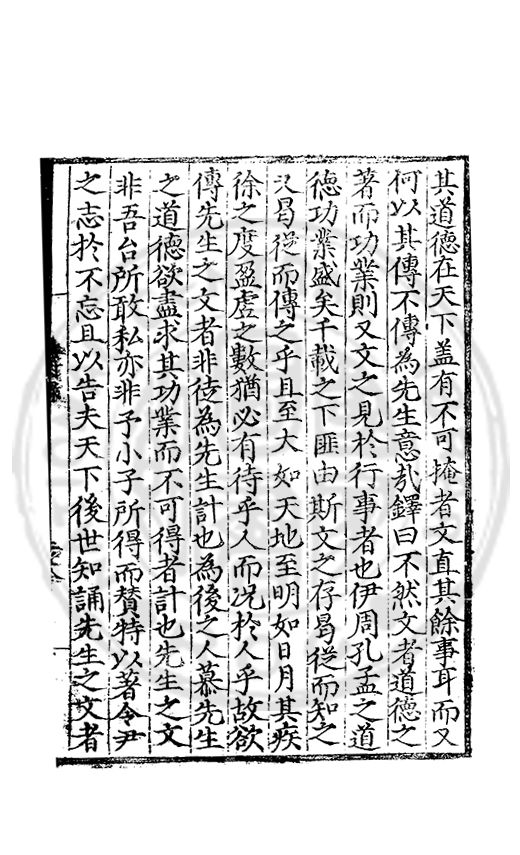 其道德在天下盖有不可掩者文直其餘事耳而又
何以其傳不傳為先生意㢤鐸曰不然文者道德之
著而功業則又文之見於行事者也伊周孔孟之道
德功業盛矣千載之下匪由斯文之存曷從而知之
又曷從而傳之乎且至大如天地至明如日月其疾
徐之度盈虛之數猶必有待乎人而况於人乎故欲
傳先生之文者非徒為先生計也為後之人慕先生
之道德欲盡求其功業而不可得者計也先生之文
非吾台所敢私亦非予小子所得而賛特以著令尹
之志於不忘且以告夫天下後世知誦先生之文者